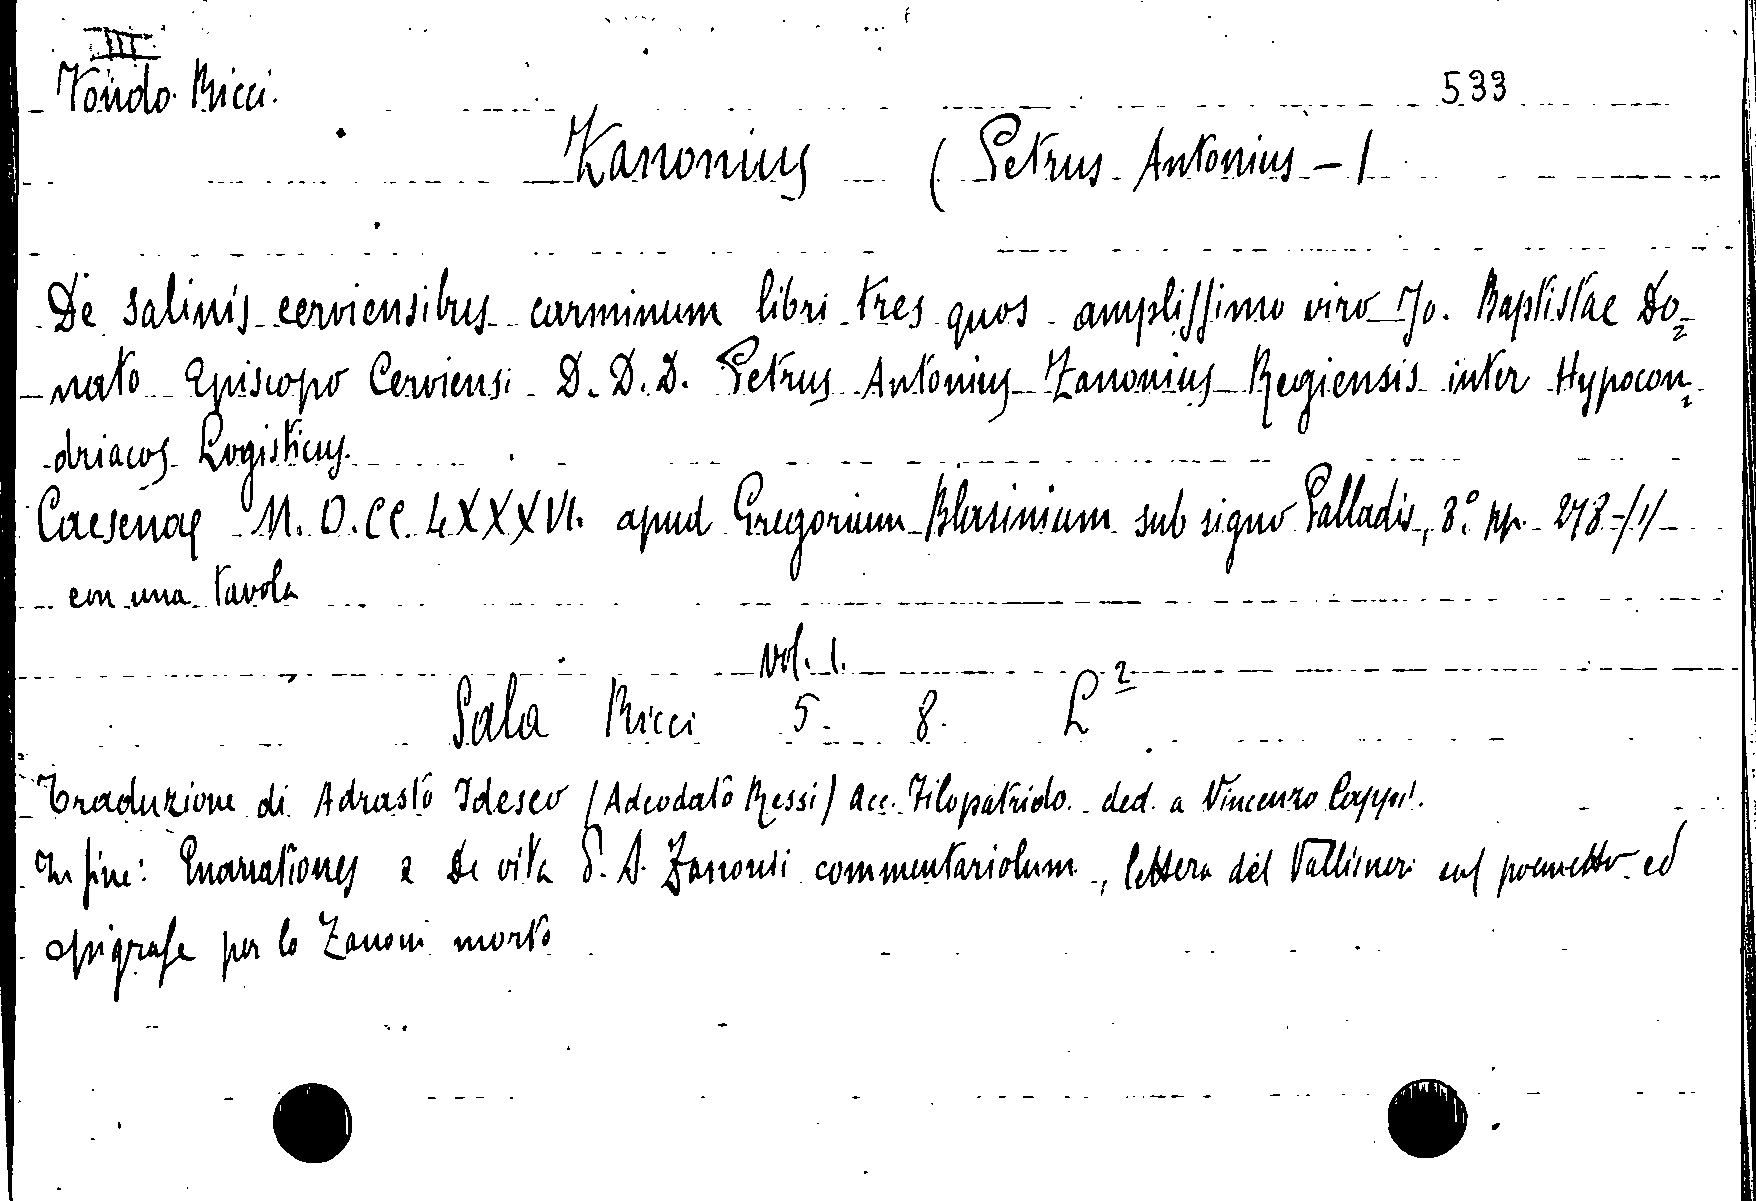 III
Fondo Ricci. 533
Zanonius (Petrus Antonius - )
De salinis cerviensibus carminum libri tres quos amplissimo viro Jo. Baptistae Do-
nato Episcopo Cerviensi D. D. D. Petrus Antonius Zanonius Regiensis inter Hypocon-
driacos Logisticus.
Caesenae M. D. CC. LXXXVI. apud Gregorium Blasinium sub signo Palladis, 8° pp. 278-/1/
con una tavola
vol. 1.
Sala Ricci 5. 8. L²
Traduzione di Adrasto Idesco (Adeodato Ressi) Acc. Filopatrido ded. a Vincenzo Cappi.
In fine: Enarrationes e De vita P. A. Zanonii commentariolum, lettera del Vallisneri sul poemetto ed
epigrafe per lo Zanoni morto